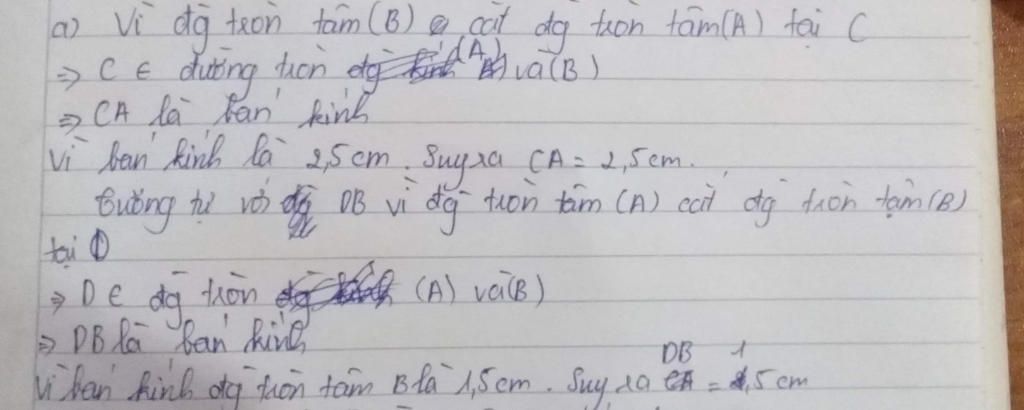 a) Vì đg tròn tâm (B) cắt đg tròn tâm (A) tại C
=> C ∈ đường tròn (A) và (B)
=> CA là bán kính
Vì bán kính là 2,5cm. Suy ra CA = 2,5cm.
Tương tự với DB vì đg tròn tâm (A) cắt đg tròn tâm (B)
tại D
=> D ∈ đg tròn (A) và (B)
=> DB là bán kính
Vì bán kính đg tròn tâm B là 1,5cm. Suy ra DB = 1,5 cm